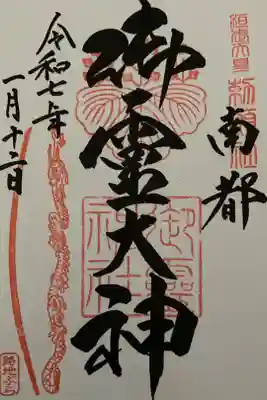 南都
御靈大神
令和七年
一月十二日
御霊神社